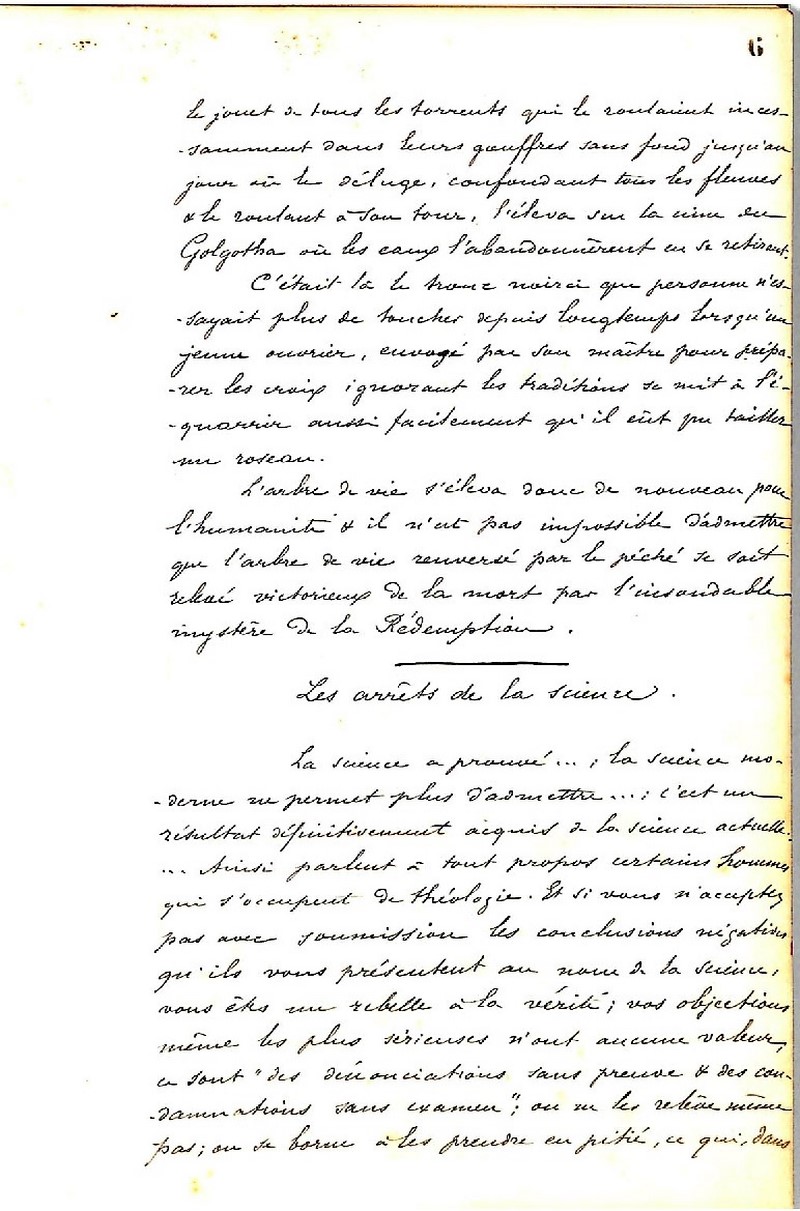 6
le jouet de tous les torrents qui le roulaient inces-
-samment dans leurs gouffres sans fond jusqu'au
jour où le déluge, confondant tous les fleuves
& le roulant à son tour, l'éleva sur la cime du
Golgotha où les eaux l'abandonnèrent en se retirant.
C'était là le tronc noirci que personne n'es-
-sayait plus de toucher depuis longtemps lorsqu'un
jeune ouvrier, envoyé par son maître pour prépa-
-rer les croix ignorant les traditions se mit à l'é-
-quarrir aussi facilement qu'il eût pu tailler
un roseau.
L'arbre de vie s'éleva donc de nouveau pour
l'humanité & il n'est pas impossible d'admettre
que l'arbre de vie renversé par le péché se soit
relevé victorieux de la mort par l'insondable
mystère de la Rédemption.
Les arrêts de la science.
La science a prouvé...; la science mo-
-derne ne permet plus d'admettre...; c'est un
résultat définitivement acquis de la science actuelle.
... Ainsi parlent à tout propos certains hommes
qui s'occupent de théologie. Et si vous n'acceptez
pas avec soumission les conclusions négatives
qu'ils vous présentent au nom de la science,
vous êtes un rebelle à la vérité; vos objections
même les plus sérieuses n'ont aucune valeur,
ce sont "des dénonciations sans preuve & des con-
-damnations sans examen"; on ne les relève même
pas; on se borne à les prendre en pitié, ce qui, dans